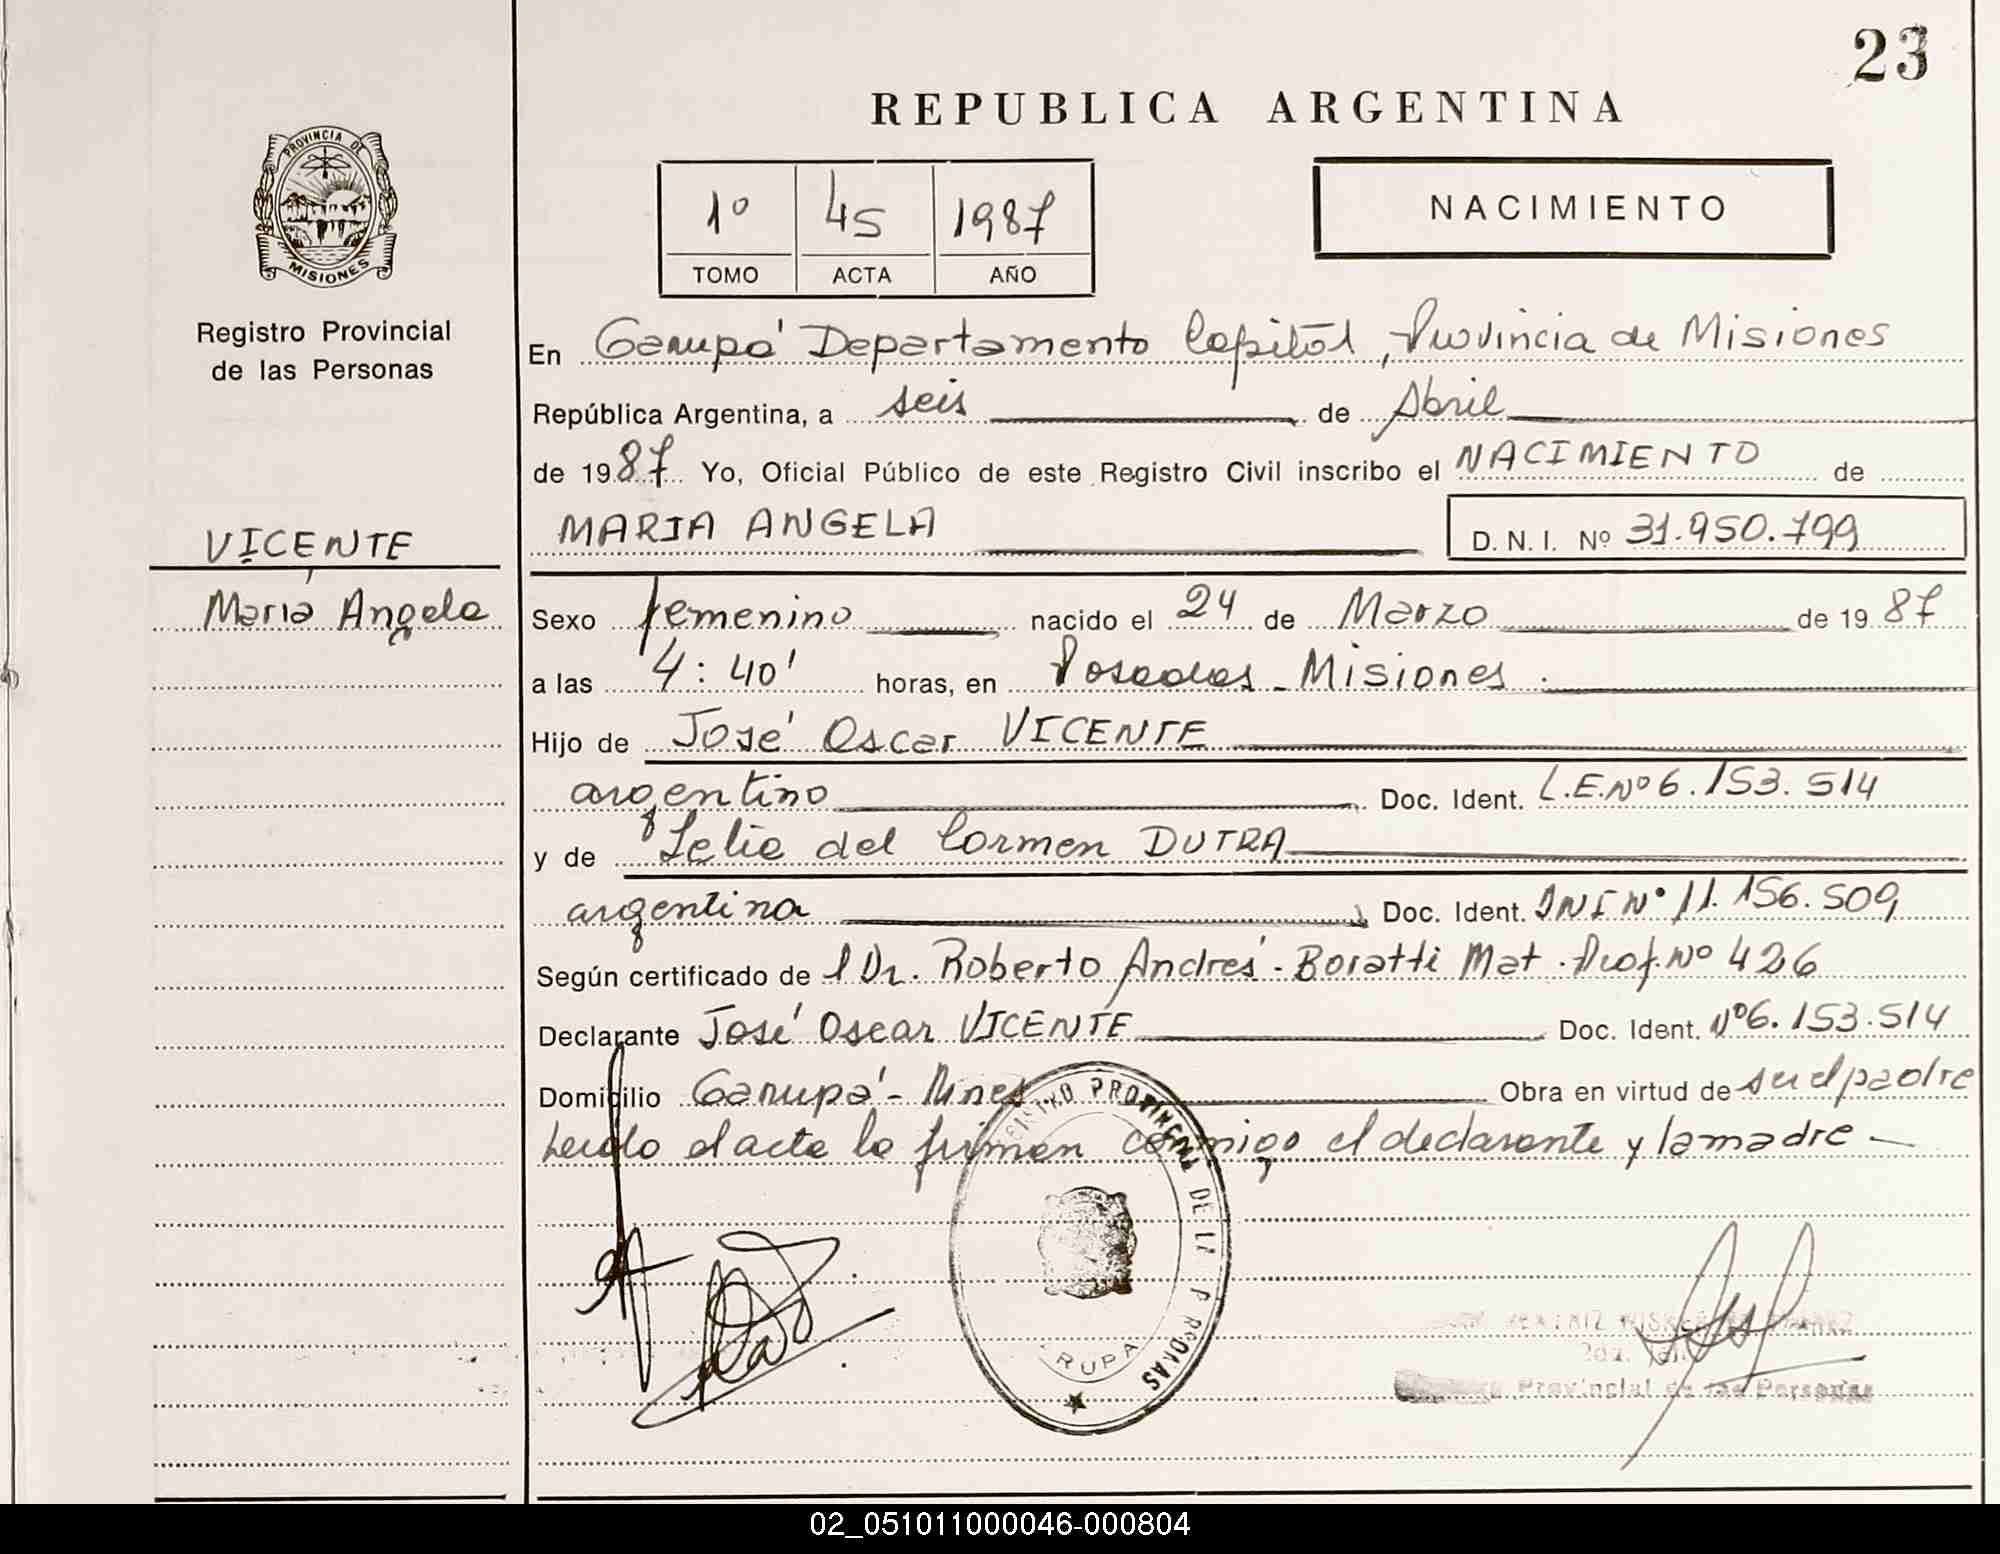 23
REPUBLICA ARGENTINA
PROVINCIA DE
MISIONES
Registro Provincial
de las Personas
1º 45 1987
TOMO ACTA AÑO
NACIMIENTO
En Garupá Departamento Capital, Provincia de Misiones
República Argentina, a seis de Abril
de 1987 Yo, Oficial Público de este Registro Civil inscribo el NACIMIENTO de
MARIA ANGELA D. N. I. Nº 31.950.799
VICENTE
María Angela
Sexo femenino nacido el 24 de Marzo de 1987
a las 4:40' horas, en Posadas - Misiones.
Hijo de José Oscar VICENTE
argentino Doc. Ident. L.E.Nº 6.153.514
y de Lelia del Carmen DUTRA
argentina Doc. Ident. DNI Nº 11.156.509
Según certificado de l Dr. Roberto Andrés - Boratti Mat. Prof. Nº 426
Declarante José Oscar VICENTE Doc. Ident. Nº 6.153.514
Domicilio Garupá - Mnes Obra en virtud de ser el padre
Leido el acta la firman conmigo el declarante y la madre
PROVINCIAL DE LA
RUPA
Provincial de las Personas
02_051011000046-000804